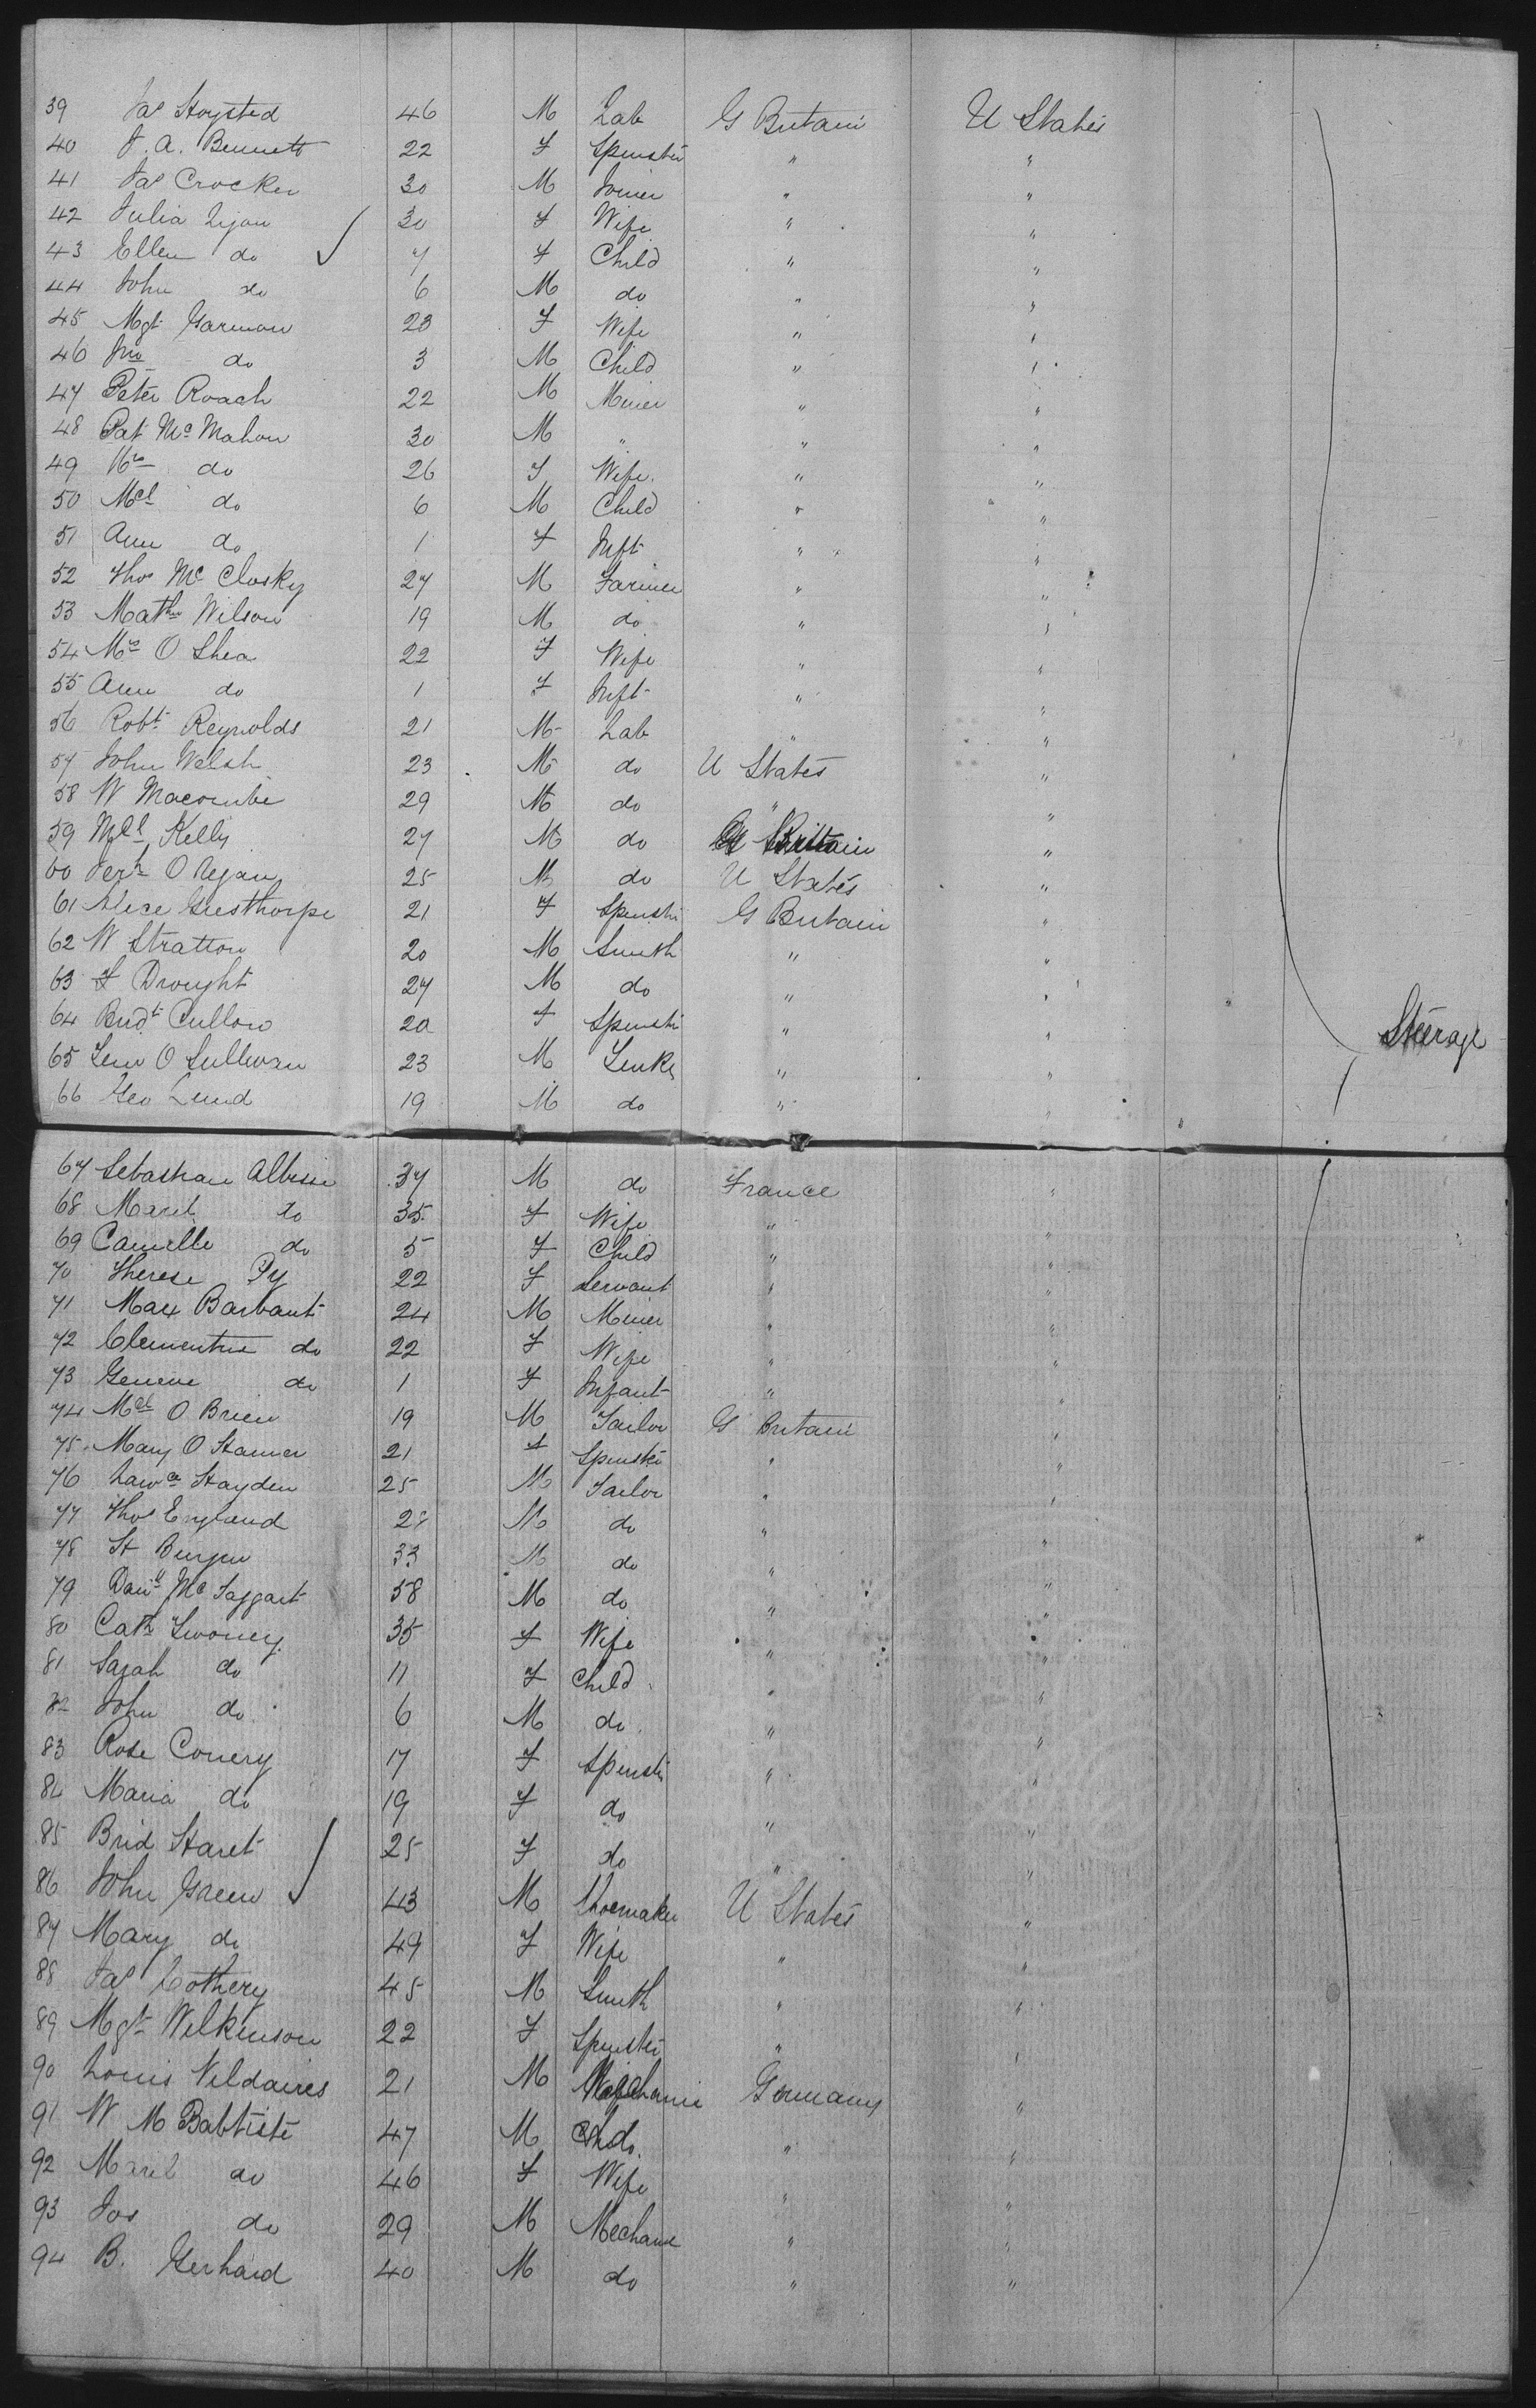 39 Jas Hoysted 46 M Lab G Britain U States
40 J. A. Bennett 22 F Spinster " "
41 Jas Crocker 30 M Joiner " "
42 Julia Lyon 30 F Wife " "
43 Ellen do 7 F Child " "
44 John do 6 M do " "
45 Mgt Garmon 23 F Wife " "
46 Jno do 3 M Child " "
47 Peter Roach 22 M Miner " "
48 Pat McMahon 30 M " " "
49 Mrs do 26 F Wife " "
50 Mcl do 6 M Child " "
51 Ann do 1 F Inft " "
52 Thos McClosky 27 M Farmer " "
53 Mathw Wilson 19 M do " "
54 Mrs O Shea 22 F Wife " "
55 Ann do 1 F Inft " "
56 Robt Reynolds 21 M Lab " "
57 John Welsh 23 M do U States "
58 W Macombe 29 M do " "
59 Mcl Kelly 27 M do G Brittain "
60 Jerh O Regan 25 M do U States "
61 Alice Gresthorpe 21 F Spinstr G Britain "
62 W Stratton 20 M Smith " "
63 F Drought 27 M do " "
64 Bridt Cullow 20 F Spinstr " "
Steerage
65 O Sullivan 23 M " "
66 Geo Lund 19 M do " "
67 Sebastian 37 M do France "
68 Marie do 35 F Wife " "
69 Camille do 5 F Child " "
70 Therese Py 22 F Servant " "
71 Max Barbant 24 M Miner " "
72 Clementine do 22 F Wife " "
73 Geneve do 1 F Infant " "
74 Mcl O Brien 19 M Tailor G Britain "
75 Mary O 21 F Spinster " "
76 Lawce Hayden 25 M Tailor " "
77 Thos England 28 M do " "
78 H Burgen 33 M do " "
79 Danl McTaggart 58 M do " "
80 Cath Twomey 35 F Wife " "
81 Sarah do 11 F Child " "
82 John do 6 M do " "
83 Rose Conery 17 F Spinstr " "
84 Maria do 19 F do " "
85 Brid Haret 25 F do " "
86 John Green 43 M Shoemaker U States "
87 Mary do 49 F Wife " "
88 Jas Cothery 45 M Smith " "
89 Mgt Wilkinson 22 F Spinster " "
90 Louis Vildaires 21 M Mechanic Germany "
91 W M Babtiste 47 M do " "
92 Marie do 46 F Wife " "
93 Jos do 29 M Mechanic " "
94 B. Gerhard 40 M do " "